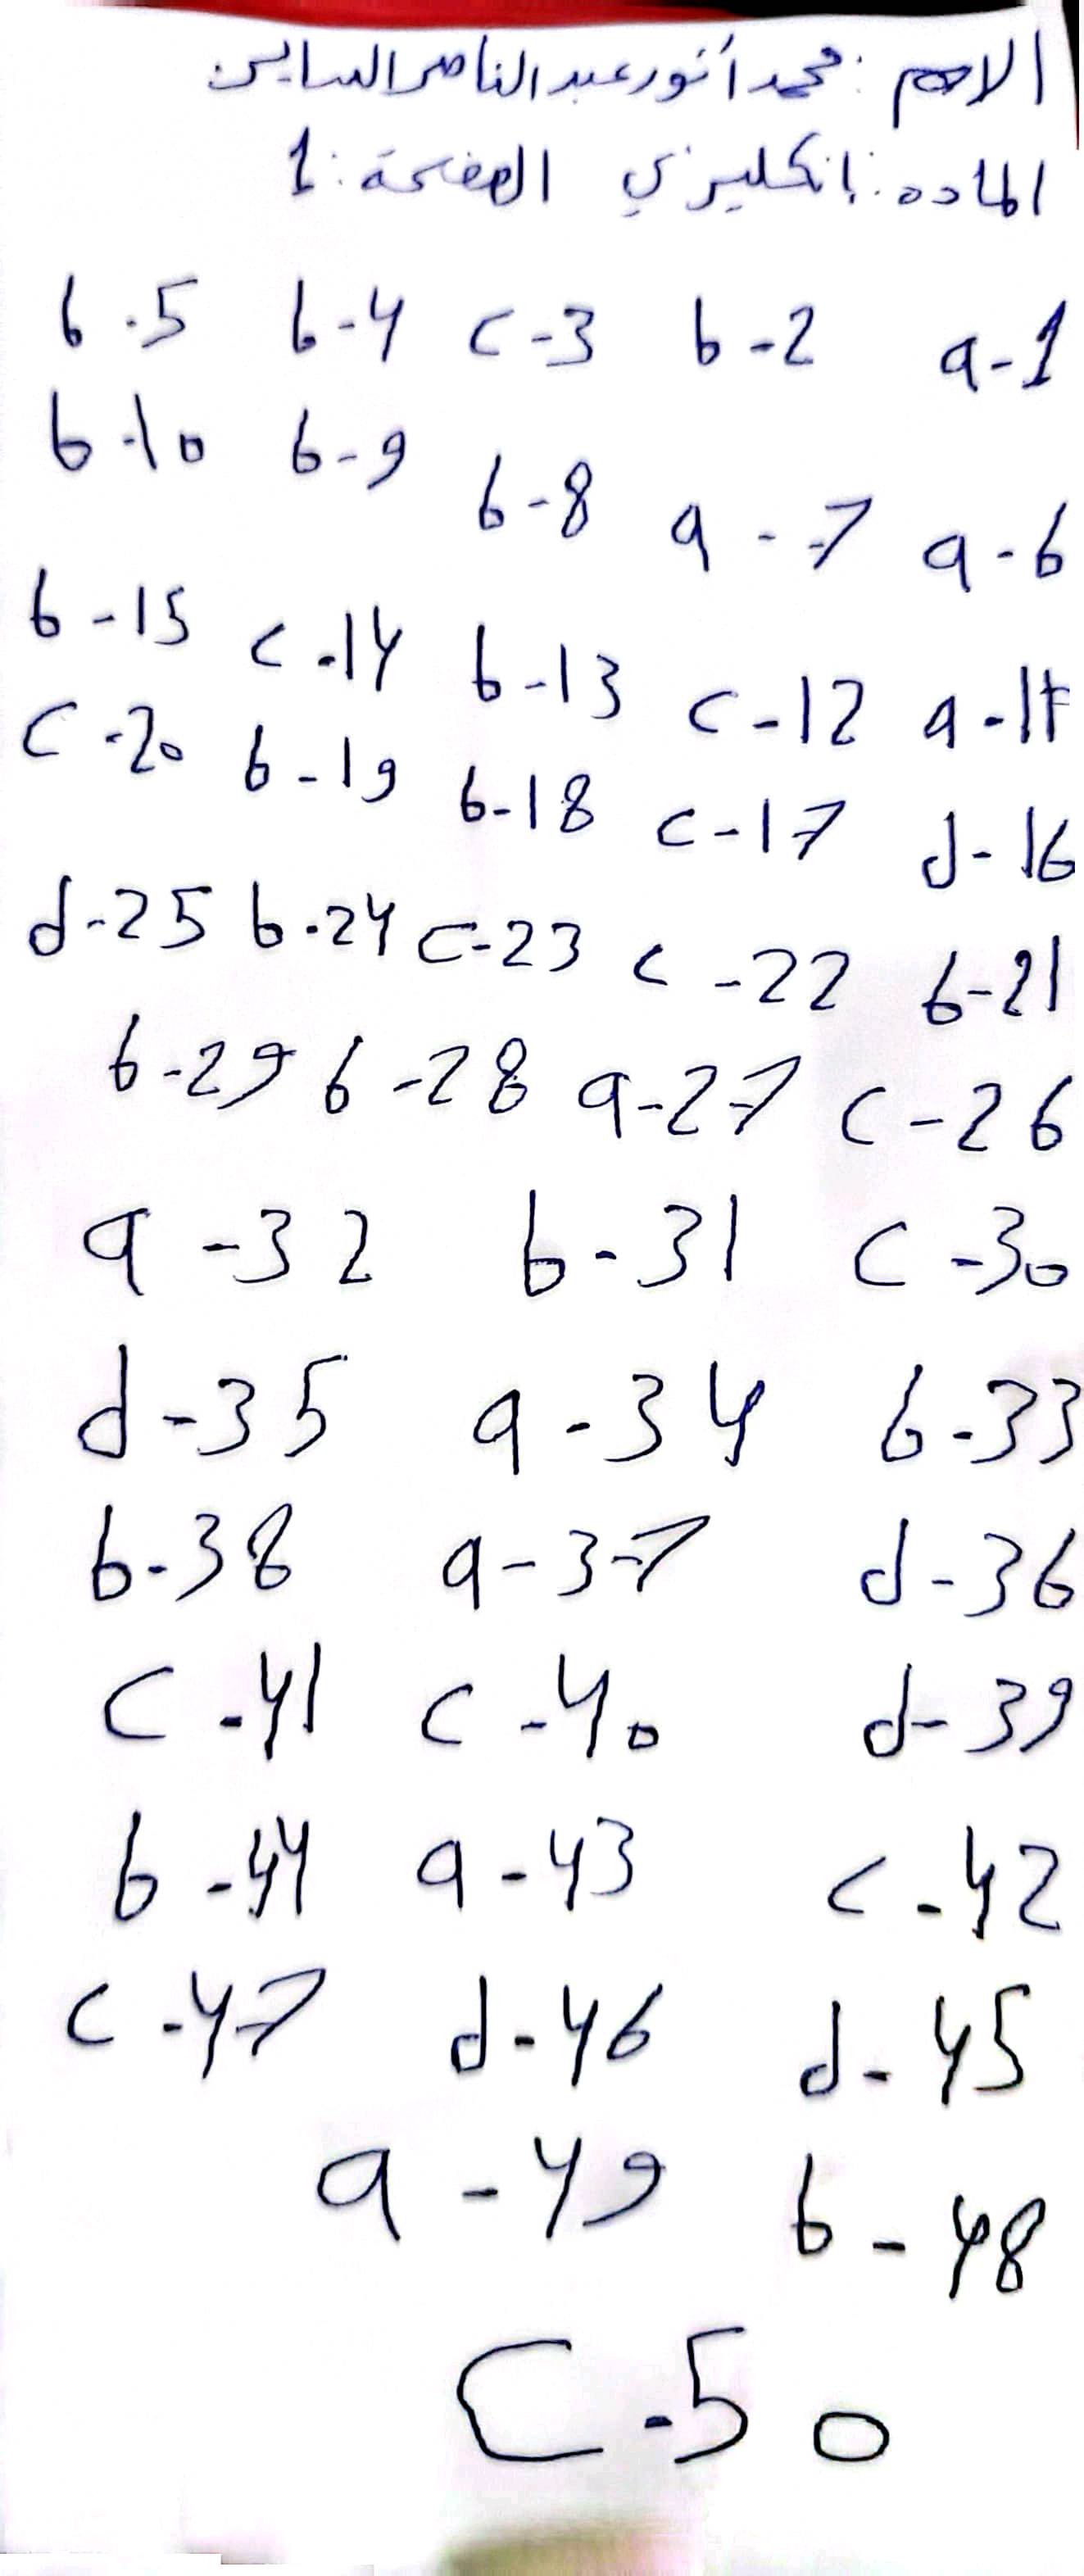 الاسم : محمد أنور عبد الناصر السايس
المادة : إنكليزي الصفحة : 1
a-1 b-2 c-3 b-4 b.5
a-6 a--7 b-8 b-9 b-10
a-11 c-12 b-13 c-14 b-15
d-16 c-17 b-18 b-19 c-20
b-21 c-22 c-23 b-24 d-25
c-26 a-27 b-28 b-29
c-30 b-31 a-32
b-33 a-34 d-35
d-36 a-37 b-38
d-39 c-40 c-41
c-42 a-43 b-44
d-45 d-46 c-47
b-48 a-49
C-50